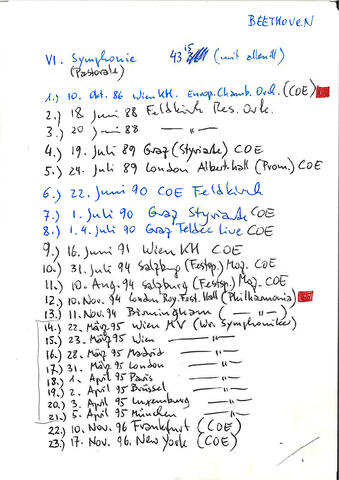 BEETHOVEN
VI. Symphonie 43 15 (mit allen !!)
(Pastorale)
1.) 10. Okt. 86 Wien KH. Europ. Chamb. Orch. (COE)
2.) 18. Juni 88 Feldkirch Res. Ork.
3.) 20. Juni 88 — " —
4.) 19. Juli 89 Graz (Styriarte) COE
5.) 24. Juli 89 London Albert hall (Prom.) COE
6.) 22. Juni 90 COE Feldkirch
7.) 1. Juli 90 Graz Styriarte COE
8.) 1. 4. Juli 90 Graz Teldec Live COE
9.) 16. Juni 91 Wien KH COE
10.) 31. Juli 94 Salzburg (Festsp.) Moz. COE
11.) 10. Aug. 94 Salzburg (Festsp.) Moz. COE
12.) 10. Nov. 94 London Roy. Fest. Hall (Philharmonia)
13.) 11. Nov. 94 Birmingham ( — " — )
14.) 22. März 95 Wien MV (Wr. Symphoniker)
15.) 23. März 95 Wien — " —
16.) 28. März 95 Madrid — " —
17.) 31. März 95 London — " —
18.) 1. April 95 Paris — " —
19.) 2. April 95 Brüssel — " —
20.) 3. April 95 Luxemburg — " —
21.) 5. April 95 München — " —
22.) 10. Nov. 96 Frankfurt (COE)
23.) 17. Nov. 96. New York (COE)